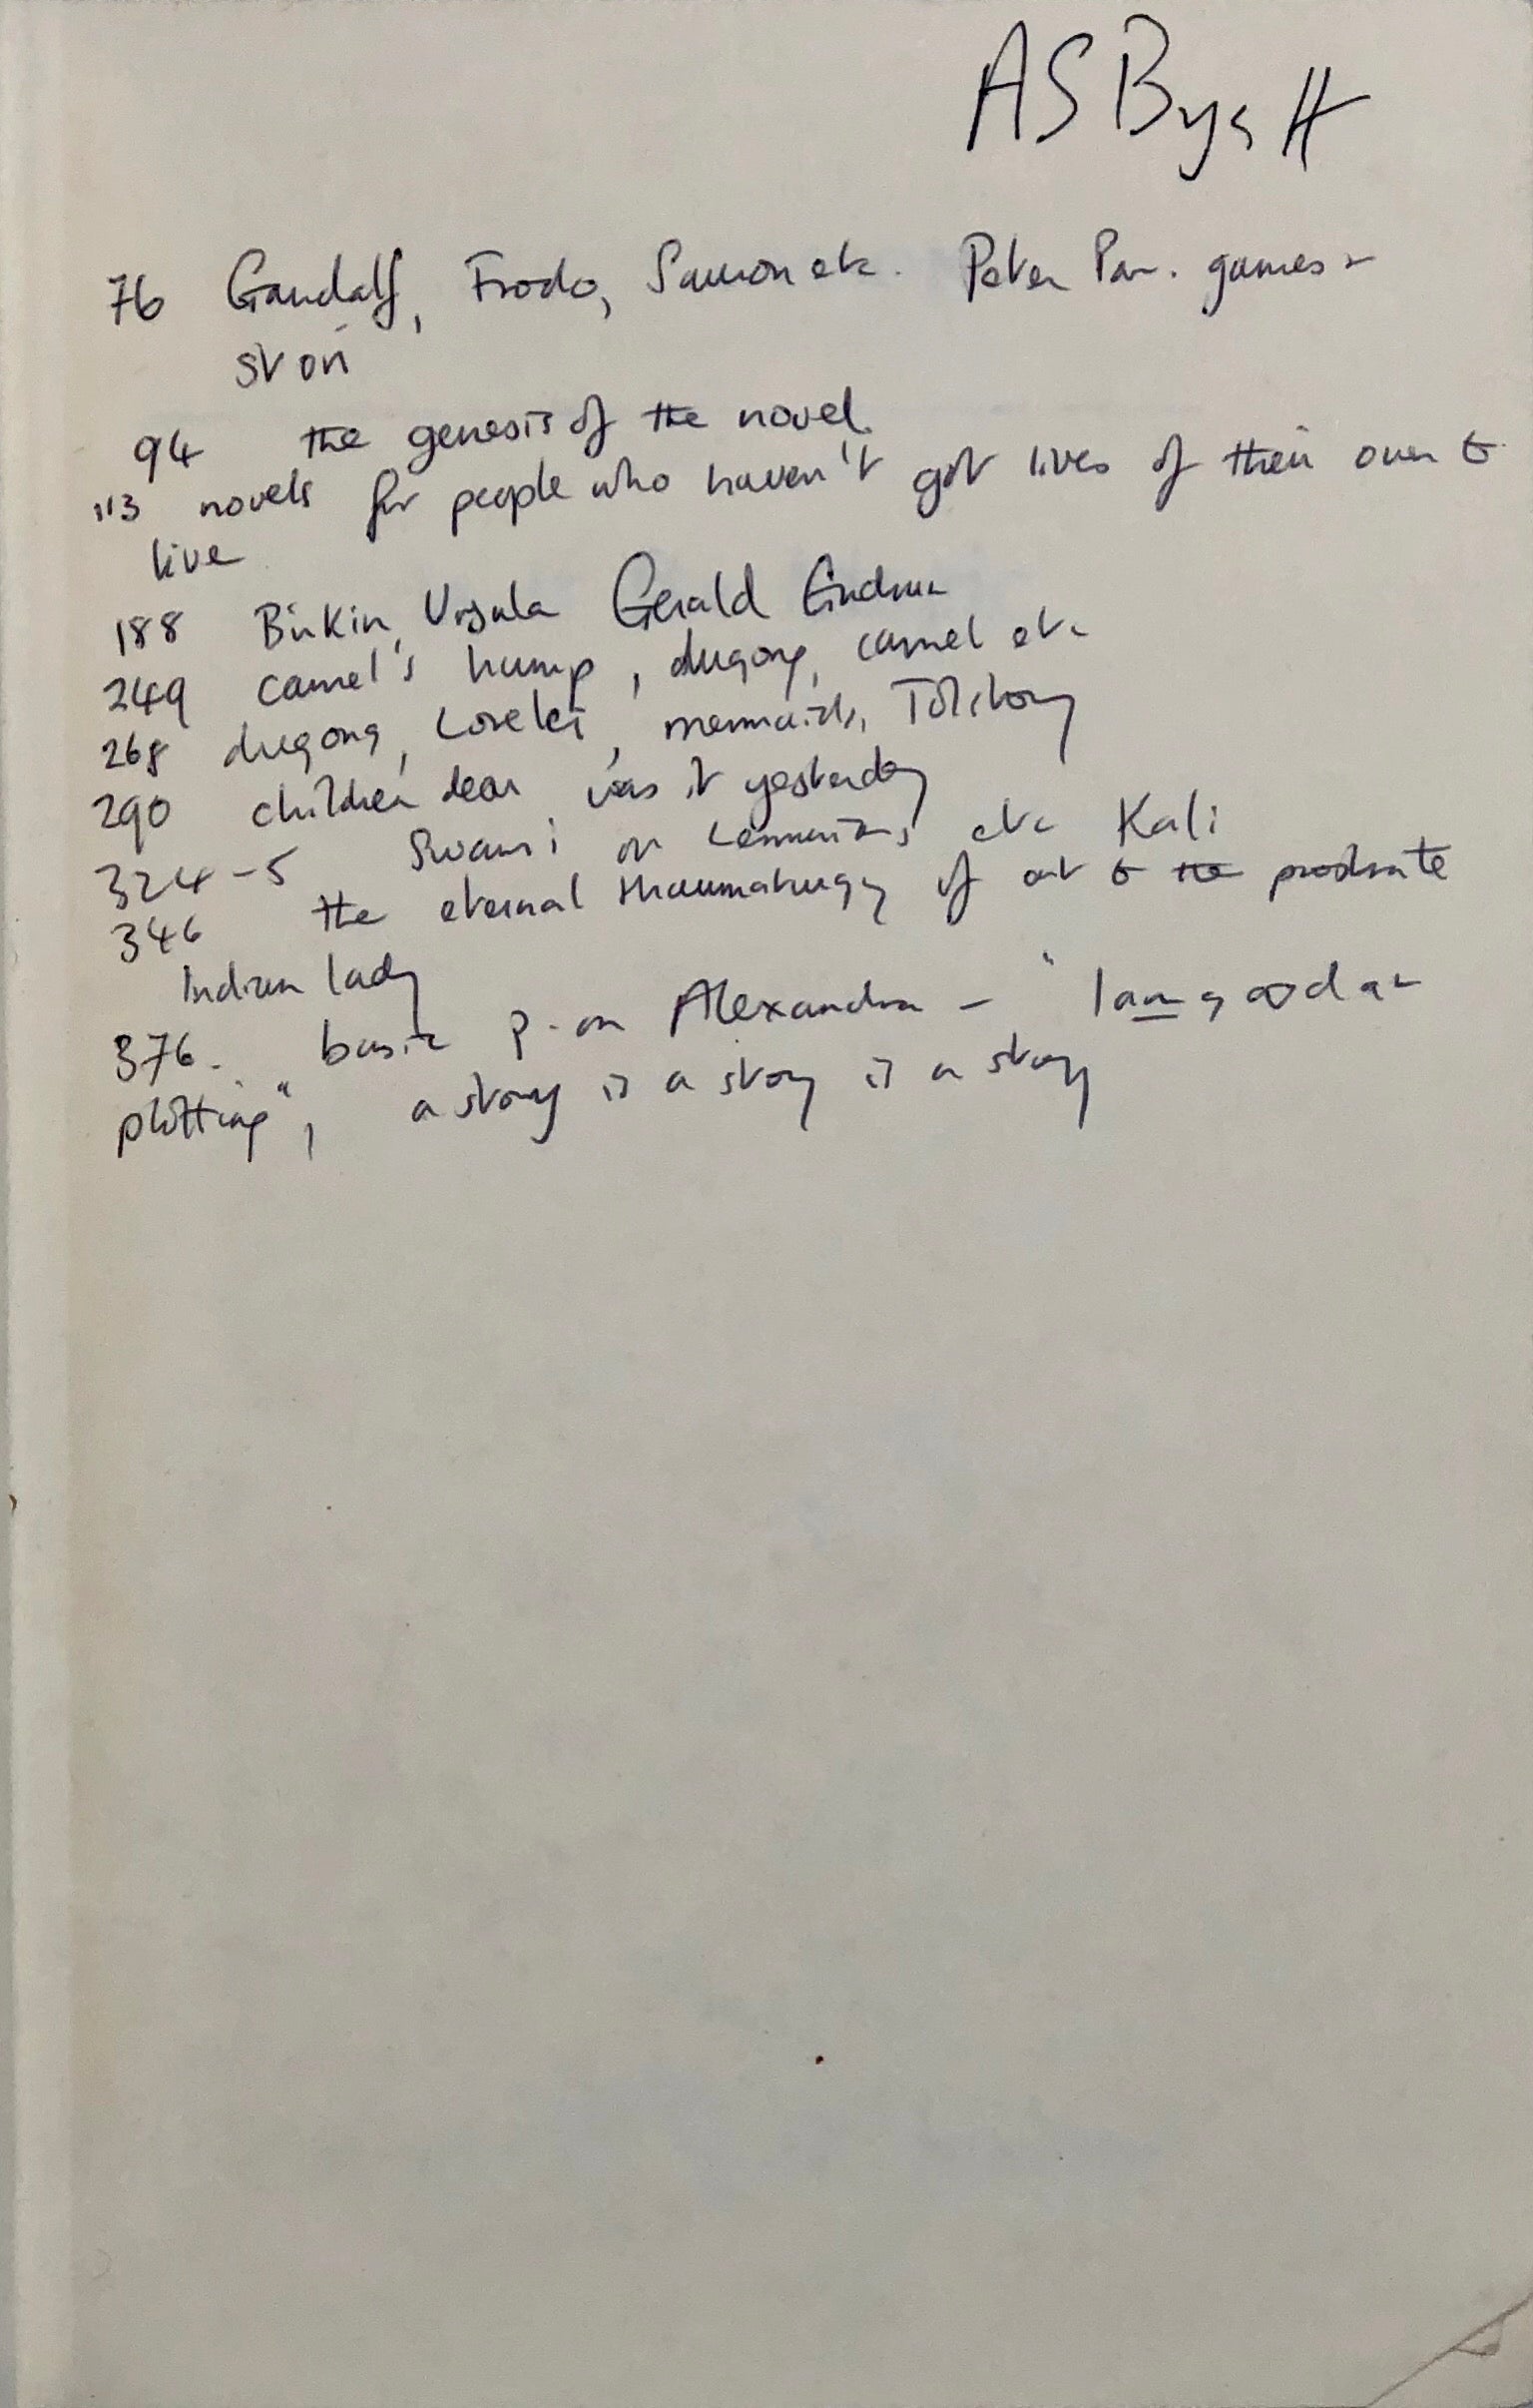 AS Byatt
76 Gandalf, Frodo, Sauron etc. Peter Pan. games
stori
94 the genesis of the novel.
113 novels for people who haven't got lives of their own to
live
188 Birkin, Ursula Gerald Gudrun
249 camel's hump, dugong, camel etc
268 dugong, Lorelei, mermaids, Tolstoy
290 children dear was it yesterday
324-5 Swami on Lemurians etc Kali
346 the eternal thaumaturgy of art to the prostrate
Indian lady
376. basic p. on Alexandra - "I am good at
plotting", a story is a story is a story